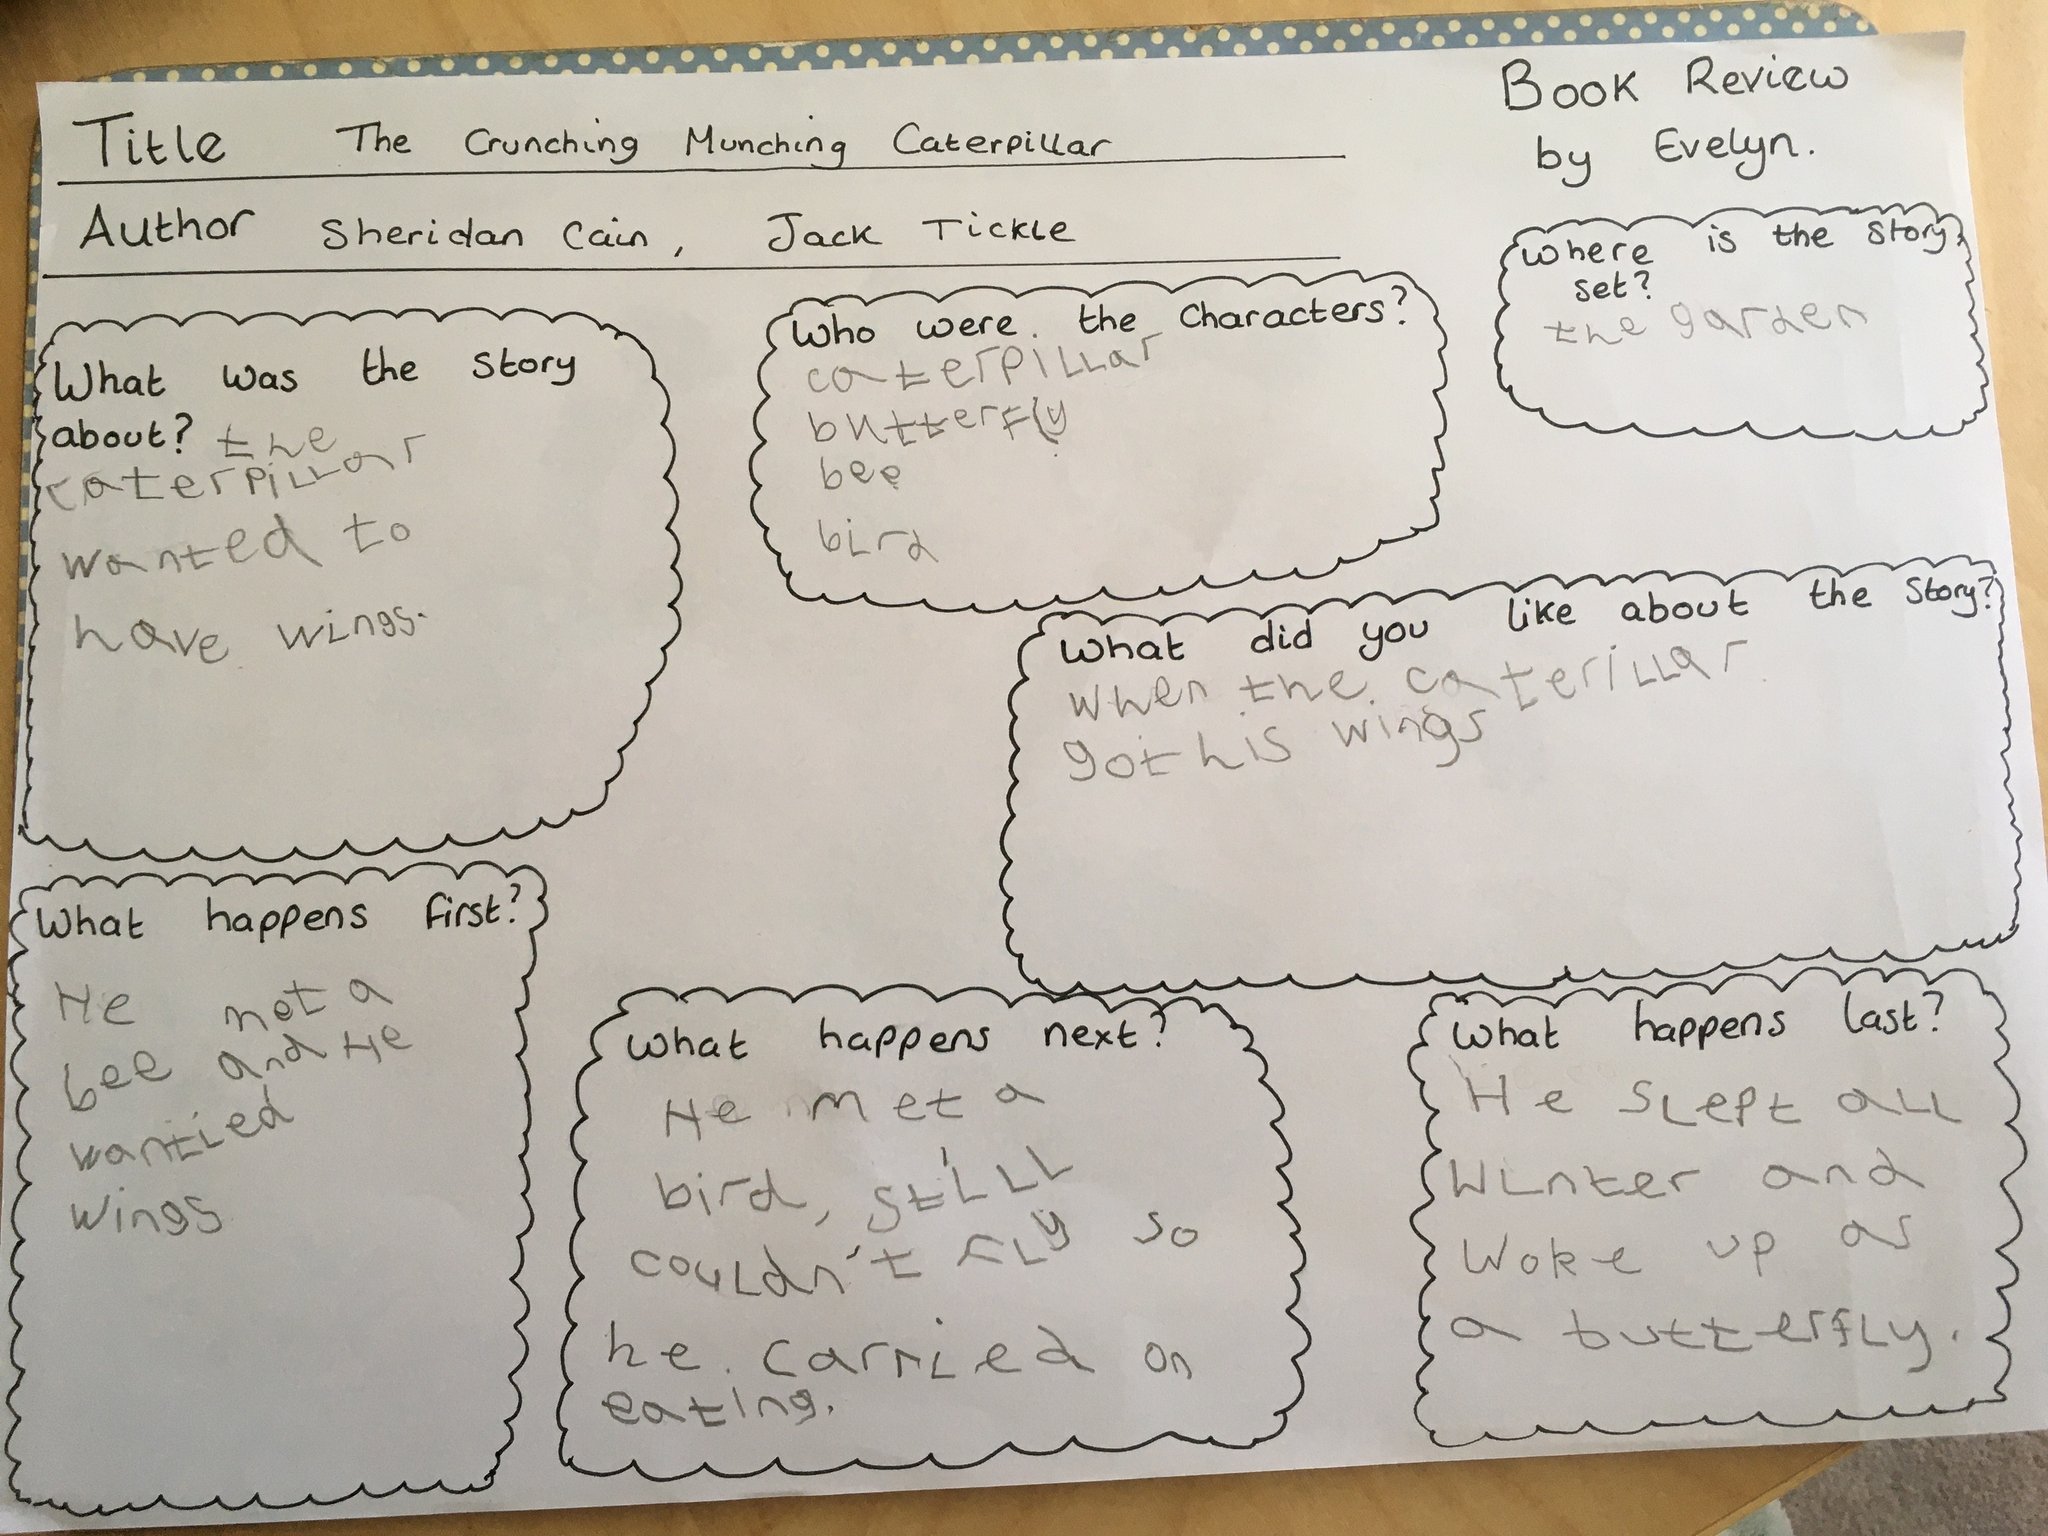 Title The Crunching Munching Caterpillar
Author Sheridan Cain, Jack Tickle
Book Review
by Evelyn.
Where is the story
set?
the garden
What was the story
about? the
caterpillar
wanted to
have wings.
Who were the characters?
caterpillar
butterfly
bee
bird
What did you like about the story?
when the caterillar
got his wings
What happens first?
He met a
bee and He
wantied
wings
What happens next?
He met a
bird, stilll
couldn't fly so
he carried on
eating.
What happens last?
He slept all
winter and
woke up as
a butterfly.